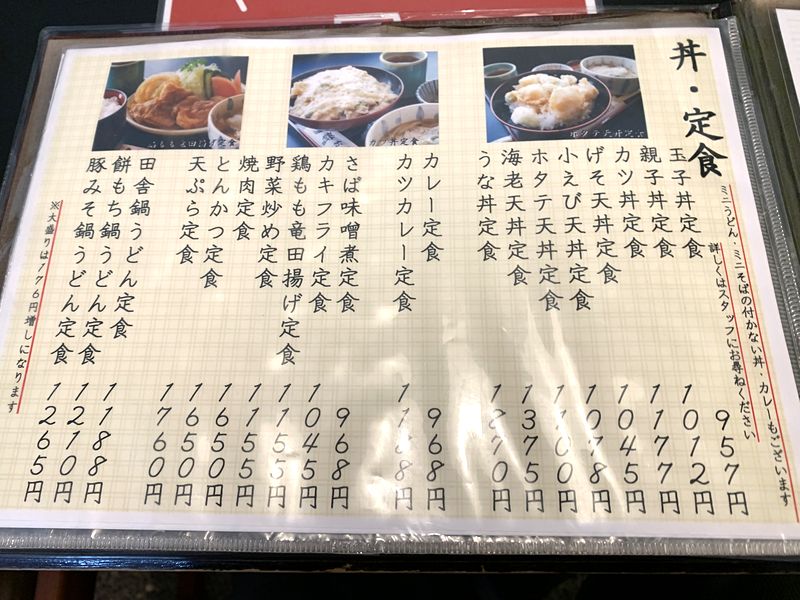 丼・定食
ミニうどん・ミニそばの付かない丼・カレーもございます
詳しくはスタッフにお尋ねください
ホタテ天丼定食
カツ丼定食
鶏もも竜田揚げ定食
玉子丼定食 957円
親子丼定食 1012円
カツ丼定食 1177円
げそ天丼定食 1045円
小えび天丼定食 1078円
ホタテ天丼定食 1100円
海老天丼定食 1375円
うな丼定食 1870円
カレー定食 968円
カツカレー定食 1188円
さば味噌煮定食 968円
カキフライ定食 1045円
鶏もも竜田揚げ定食 1155円
野菜炒め定食 1155円
焼肉定食 1650円
とんかつ定食 1650円
天ぷら定食 1760円
田舎鍋うどん定食 1188円
餅もち鍋うどん定食 1210円
豚みそ鍋うどん定食 1265円
※大盛りは176円増しになります